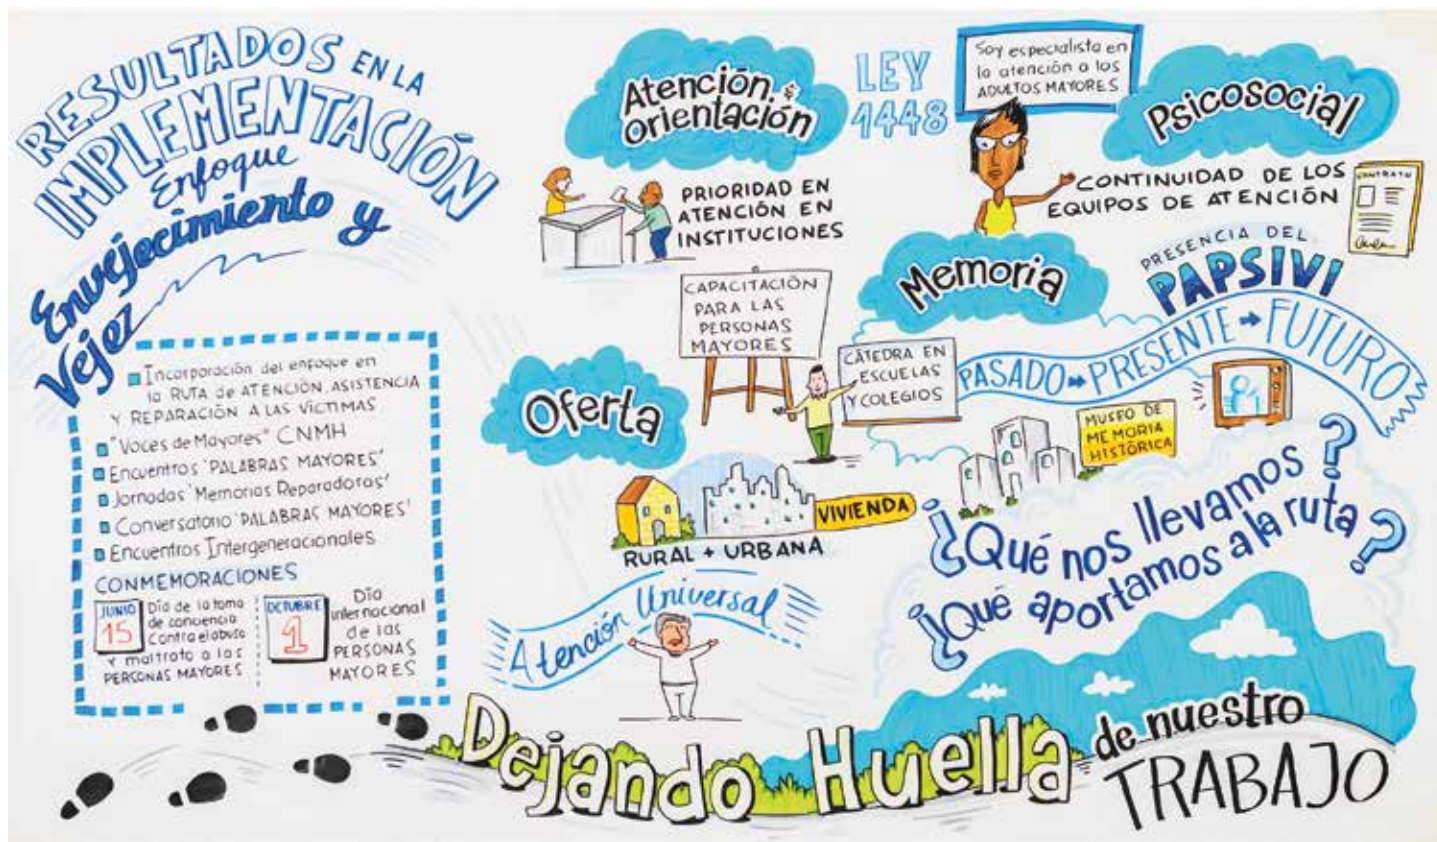 RESULTADOS EN LA
IMPLEMENTACIÓN
Enfoque
Envejecimiento y
Vejez
Incorporación del enfoque en
la RUTA de ATENCIÓN, ASISTENCIA
Y REPARACIÓN A LAS VÍCTIMAS
"Voces de Mayores" CNMH
Encuentros 'PALABRAS MAYORES'
Jornadas 'Memorias Reparadoras'
Conversatorio 'PALABRAS MAYORES'
Encuentros Intergeneracionales
CONMEMORACIONES
JUNIO
15
Día de la toma
de conciencia
contra el abuso
y maltrato a las
PERSONAS MAYORES
OCTUBRE
1
Día
internacional
de las
PERSONAS
MAYORES
Atención &
orientación
LEY
1448
PRIORIDAD EN
ATENCIÓN EN
INSTITUCIONES
Soy especialista en
la atención a los
ADULTOS MAYORES
Psicosocial
CONTINUIDAD DE LOS
EQUIPOS DE ATENCIÓN
CONTRATO
PRESENCIA DEL
PAPSIVI
Memoria
PASADO PRESENTE FUTURO
CÁTEDRA EN
ESCUELAS
Y COLEGIOS
MUSEO DE
MEMORIA
HISTÓRICA
CAPACITACIÓN
PARA LAS
PERSONAS
MAYORES
Oferta
VIVIENDA
RURAL + URBANA
Atención Universal
¿Qué nos llevamos?
¿Qué aportamos a la ruta?
Dejando Huella de nuestro
TRABAJO